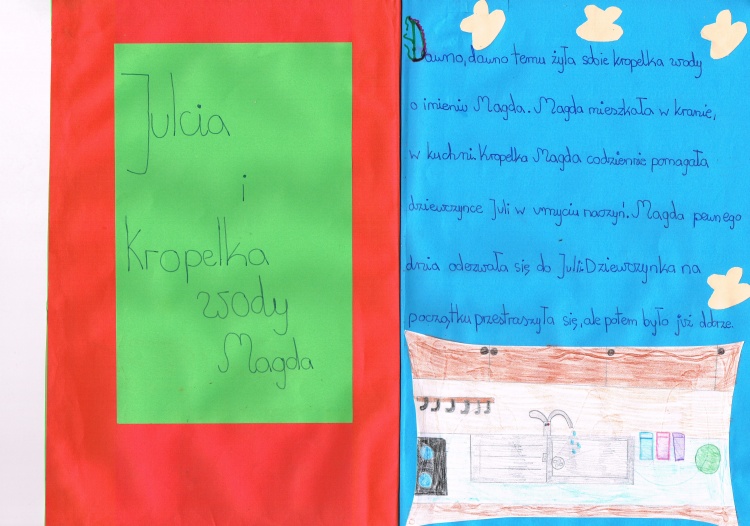 Julcia
i
Kropelka
wody
Magda
Dawno, dawno temu żyła sobie kropelka wody
o imieniu Magda. Magda mieszkała w kranie,
w kuchni. Kropelka Magda codziennie pomagała
dziewczynce Juli w umyciu naczyń. Magda pewnego
dnia odezwała się do Juli. Dziewczynka na
początku przestraszyła się, ale potem było już dobrze.